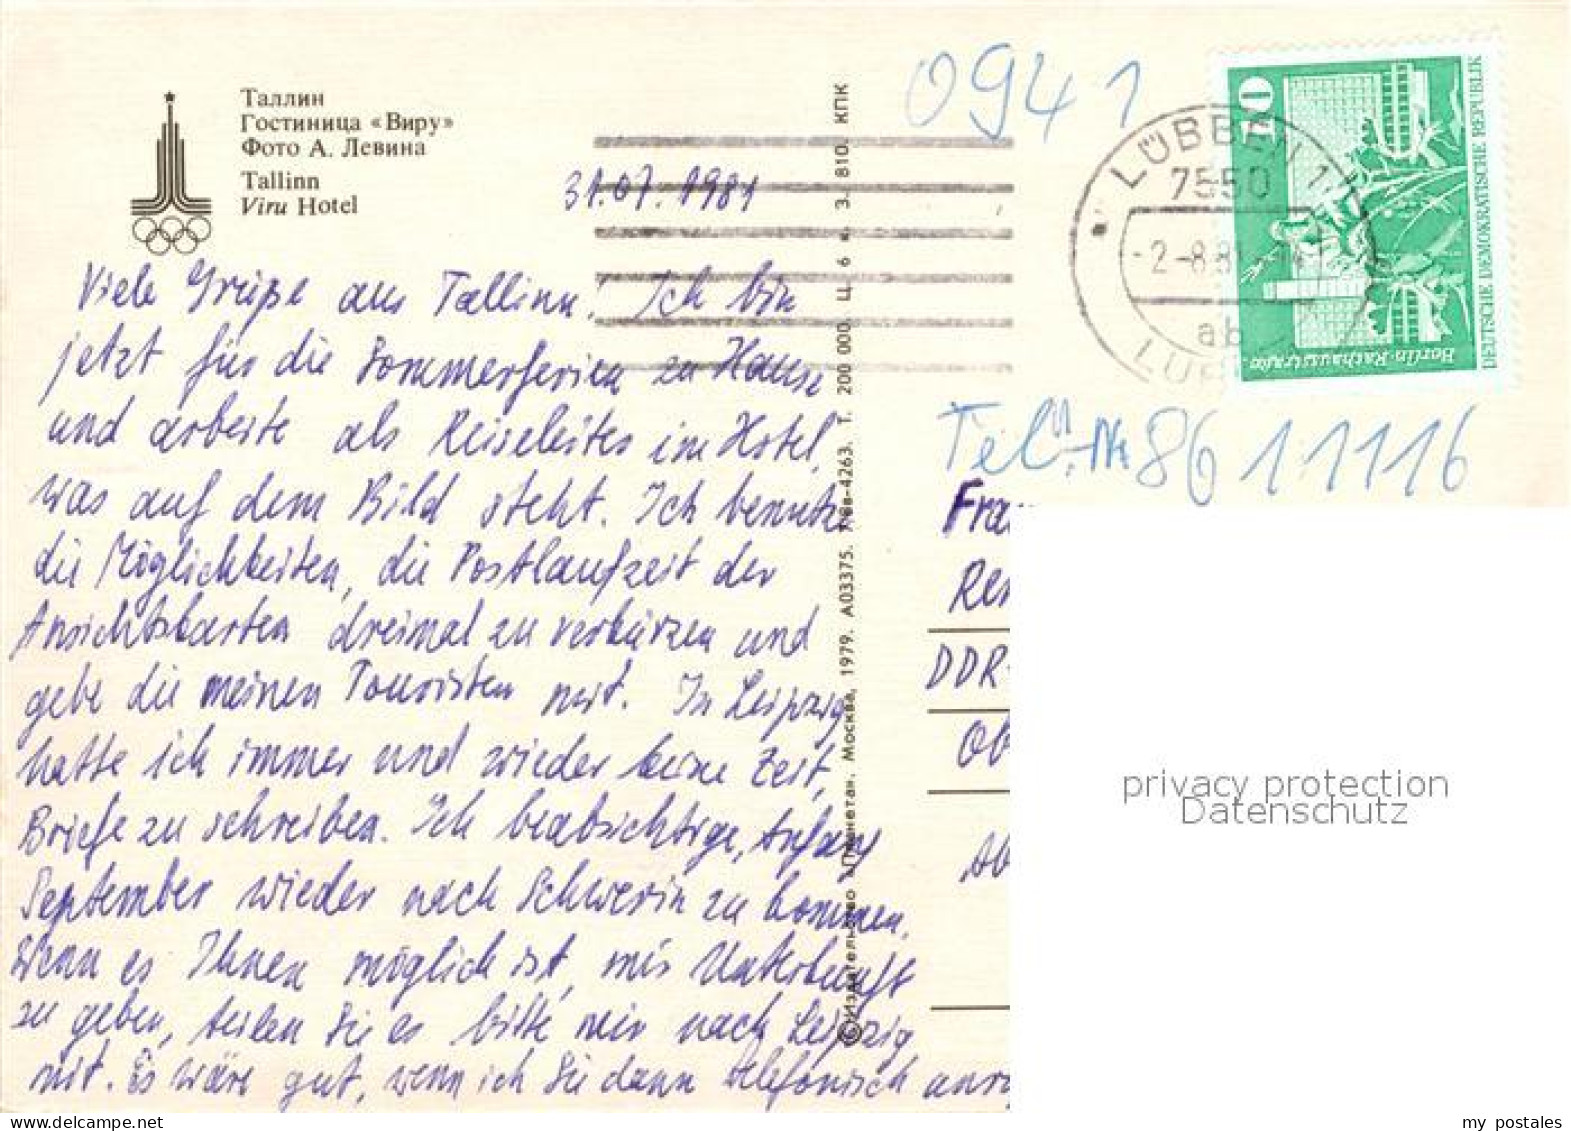 Таллин
Гостиница «Виру»
Фото А. Левина
Tallinn
Viru Hotel
31.07.1981
Viele Grüße aus Tallinn! Ich bin
jetzt für die Sommerferien zu Hause
und arbeite als Reiseleiter im Hotel,
was auf dem Bild steht. Ich benutze
die Möglichkeiten, die Postlaufzeit der
Ansichtskarten dreimal zu verkürzen und
gebe die meinen Touristen mit. In Leipzig
hatte ich immer und wieder keine Zeit,
Briefe zu schreiben. Ich beabsichtige, Anfang
September wieder nach Schwerin zu kommen.
Wenn es Ihnen möglich ist, mir Unterkunft
zu geben, teilen Sie es bitte mir nach Leipzig
mit. Es wäre gut, wenn ich Sie dann telefonisch
©Издательство «Планета». Москва, 1979. А03375. 7/8в-4263. Т. 200 000. Ц. 6 к. З. 810. КПК
0941
LÜBBEN 1
7550
-2-8.81
ab
10
Berlin-Rathausstraße
DEUTSCHE DEMOKRATISCHE REPUBLIK
Tel.-Nr 8611116
DDR-
privacy protection
Datenschutz
www.delcampe.net
my_postales